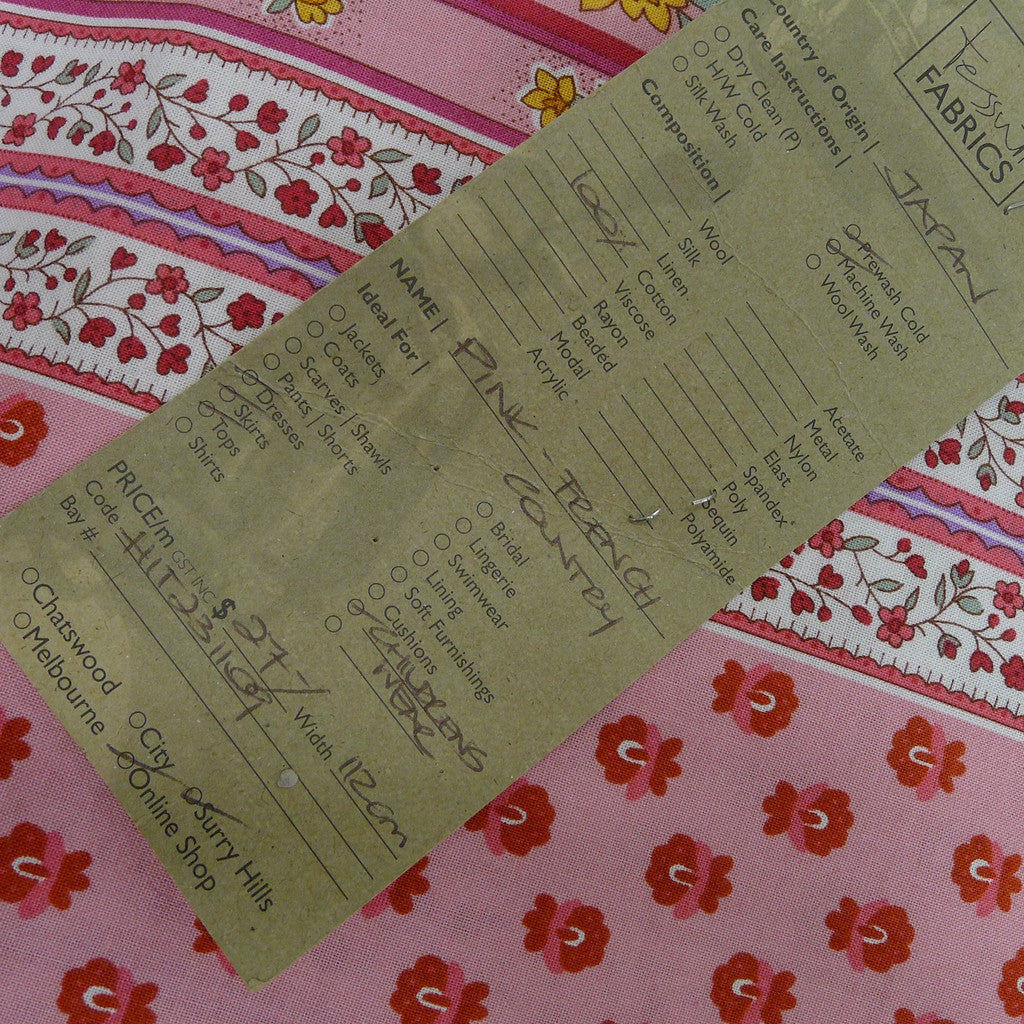 Tessuti
FABRICS
Country of Origin | JAPAN
Care Instructions |
Dry Clean (P)
H/W Cold
Silk Wash
Prewash Cold
Machine Wash
Wool Wash
Composition |
Wool
Silk
Linen
100% Cotton
Viscose
Rayon
Beaded
Modal
Acrylic
Acetate
Metal
Nylon
Elast
Spandex
Poly
Sequin
Polyamide
NAME | PINK - FRENCH
COUNTRY
Ideal For |
Jackets
Coats
Scarves | Shawls
Pants | Shorts
Dresses
Skirts
Tops
Shirts
Bridal
Lingerie
Swimwear
Lining
Soft Furnishings
Cushions
CHILDRENS
WEAR
PRICE/m GST INC $ 27-/ Width 112cm
Code
Bay #
Chatswood
Melbourne
City
Online Shop
Surry Hills